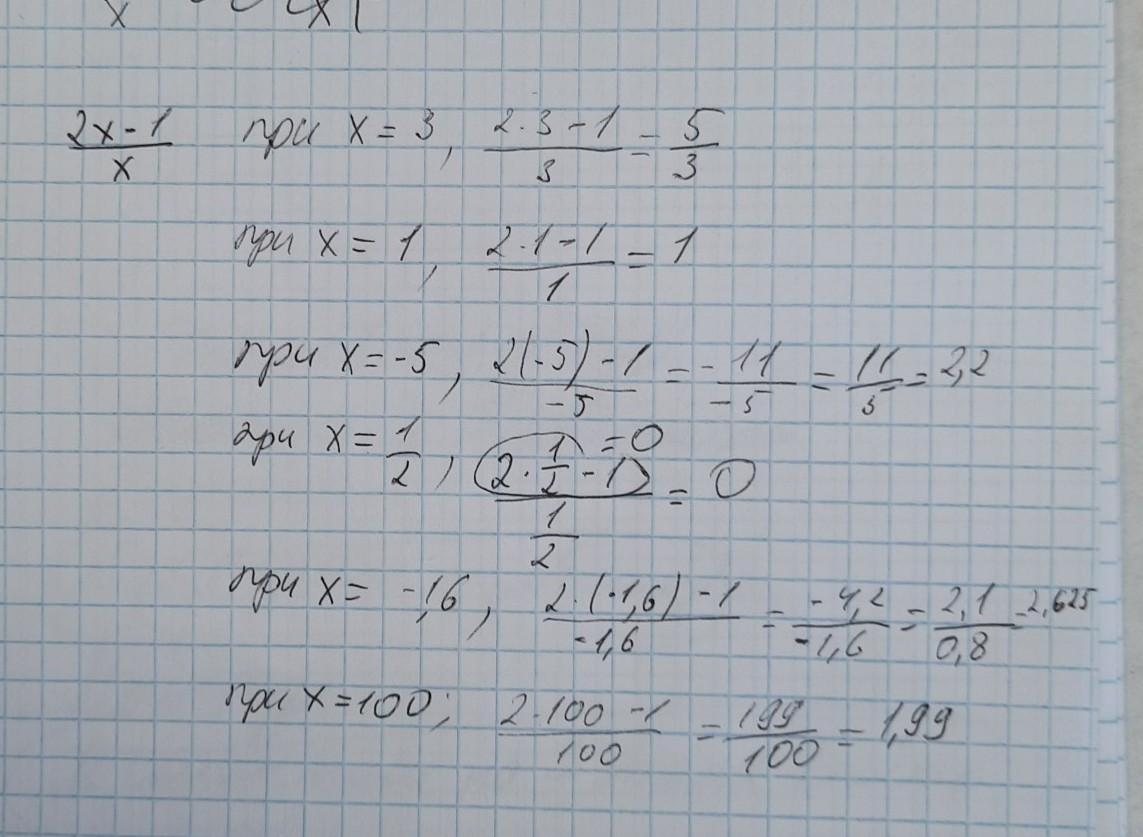 x x
2x-1/x при x = 3, 2·3-1/3 = 5/3
при x = 1, 2·1-1/1 = 1
при x = -5, 2(-5)-1/-5 = -11/-5 = 11/5 = 2,2
при x = 1/2, (2·1/2-1)/1/2 = 0 = 0
при x = -1,6, 2·(-1,6)-1/-1,6 = -4,2/-1,6 = 2,1/0,8 = 2,625
при x = 100; 2·100-1/100 = 199/100 = 1,99